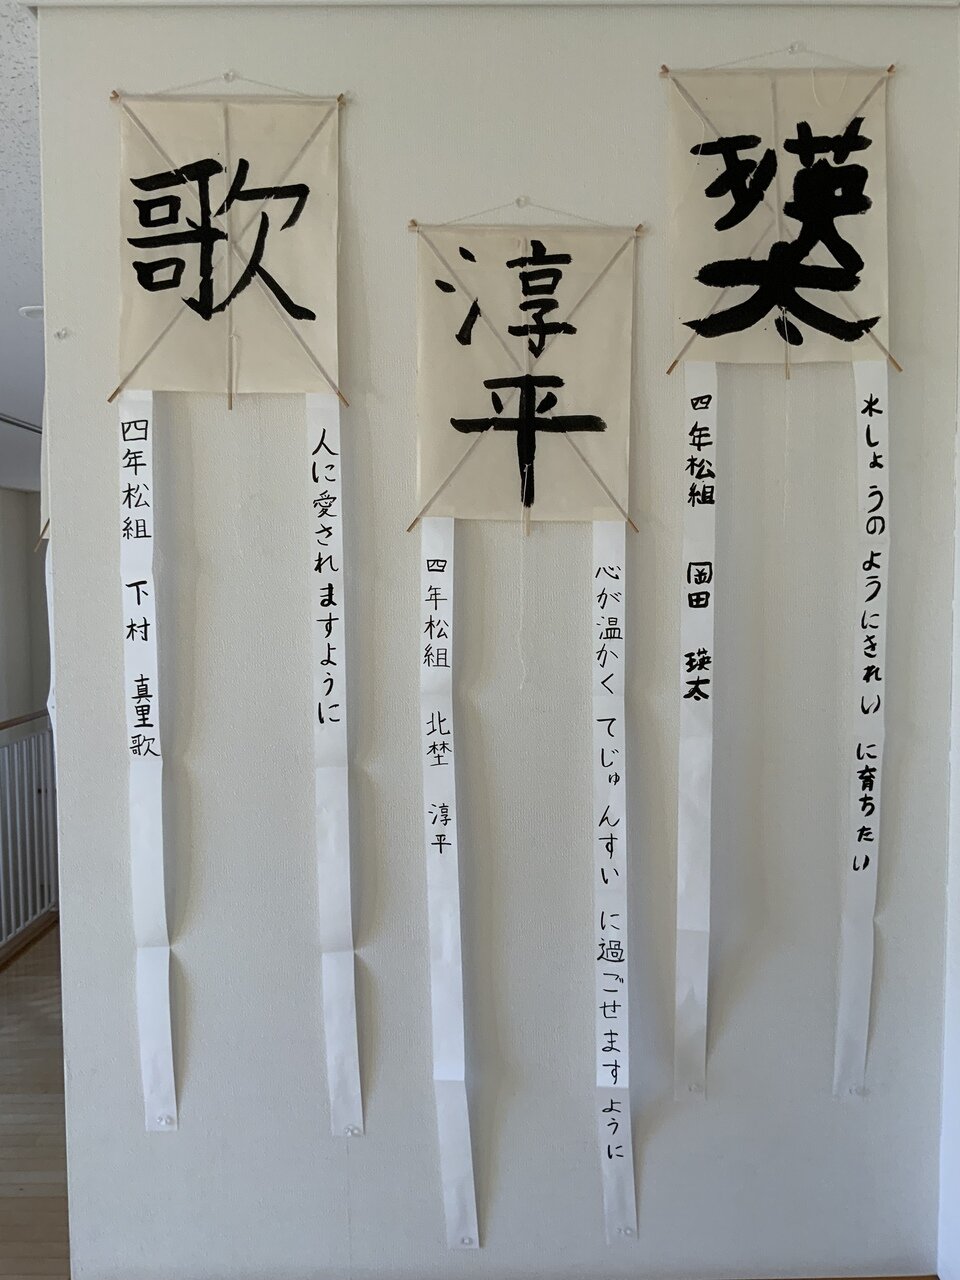 瑛太
水しょうのようにきれいに育ちたい
四年松組 岡田 瑛太
淳平
心が温かくてじゅんすいに過ごせますように
四年松組 北埜 淳平
歌
人に愛されますように
四年松組 下村 真里歌